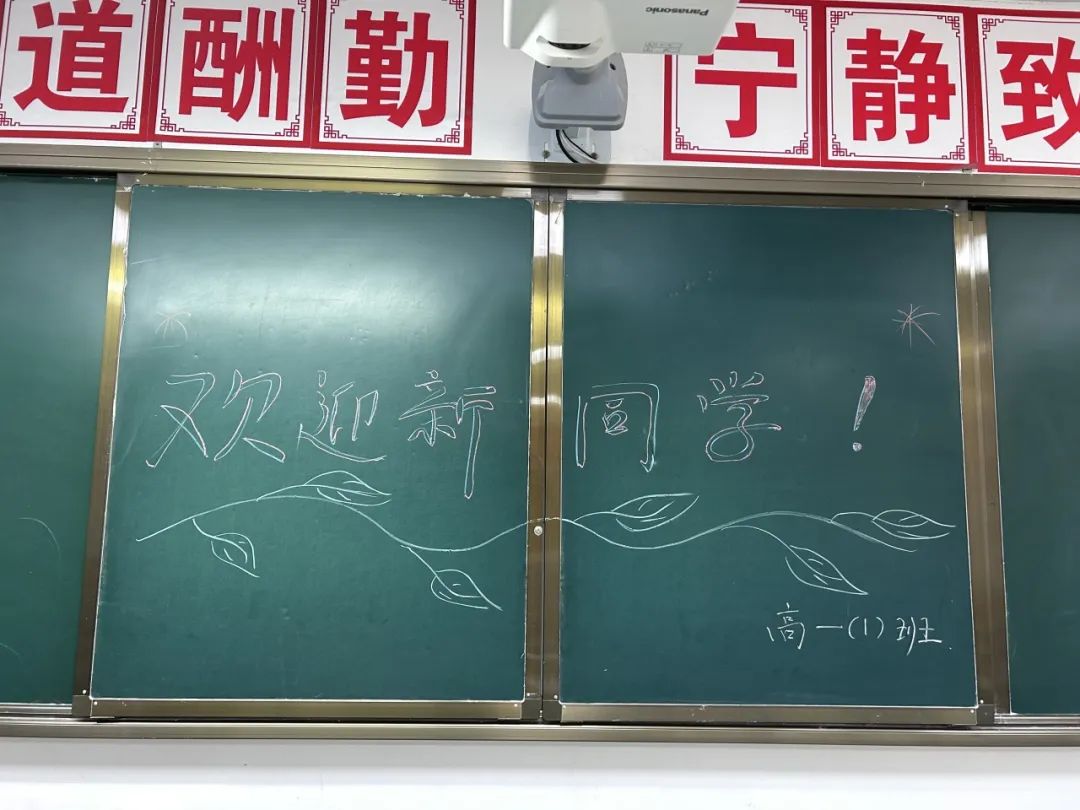 道酬勤 宁静致
Panasonic
欢迎新同学！
高一(1)班